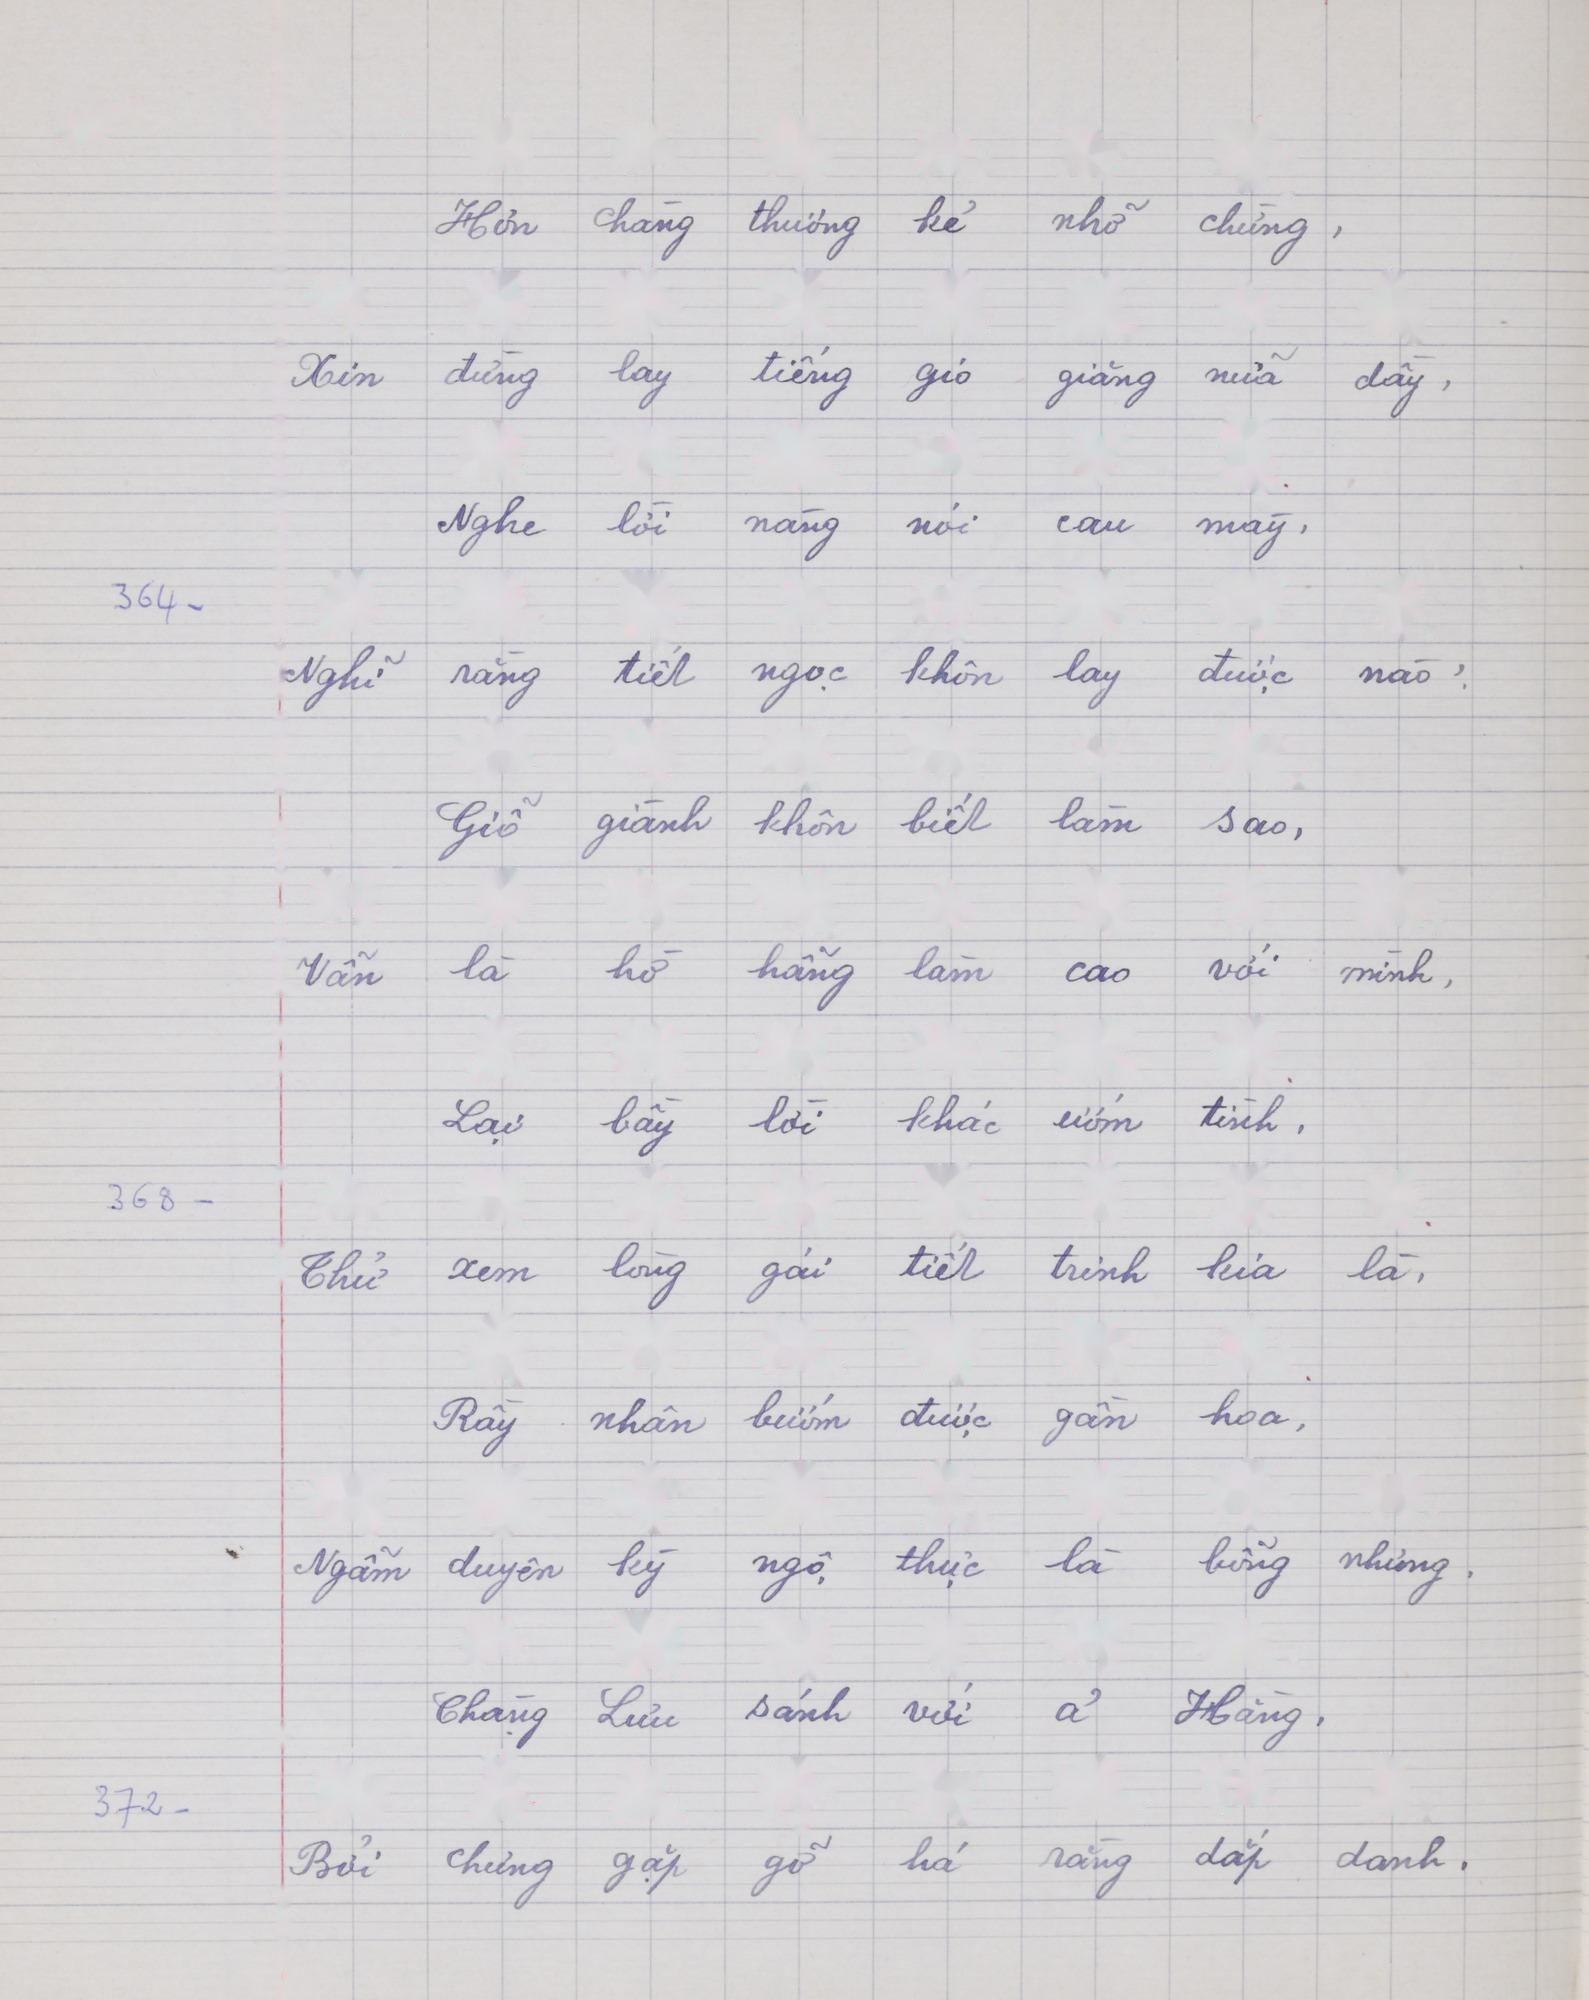 Hơn chăng thương kẻ nhỡ chừng,
Xin đừng lay tiếng gió giăng nữa dầy,
Nghe lời nàng nói cau mày,
364-
Nghĩ rằng tiết ngọc khôn lay được nào?
Giỗ giành khôn biết làm sao,
Vẫn là hờ hẫng làm cao với mình,
Lại bầy lời khác ướm tình,
368-
Thử xem lòng gái tiết trinh kia là,
Rầy nhân bướm được gần hoa,
Ngẫm duyên kỳ ngộ, thực là bỗng nhưng.
Chàng Lưu sánh với ả Hằng,
372-
Bởi chưng gặp gỡ há rằng dắp danh.